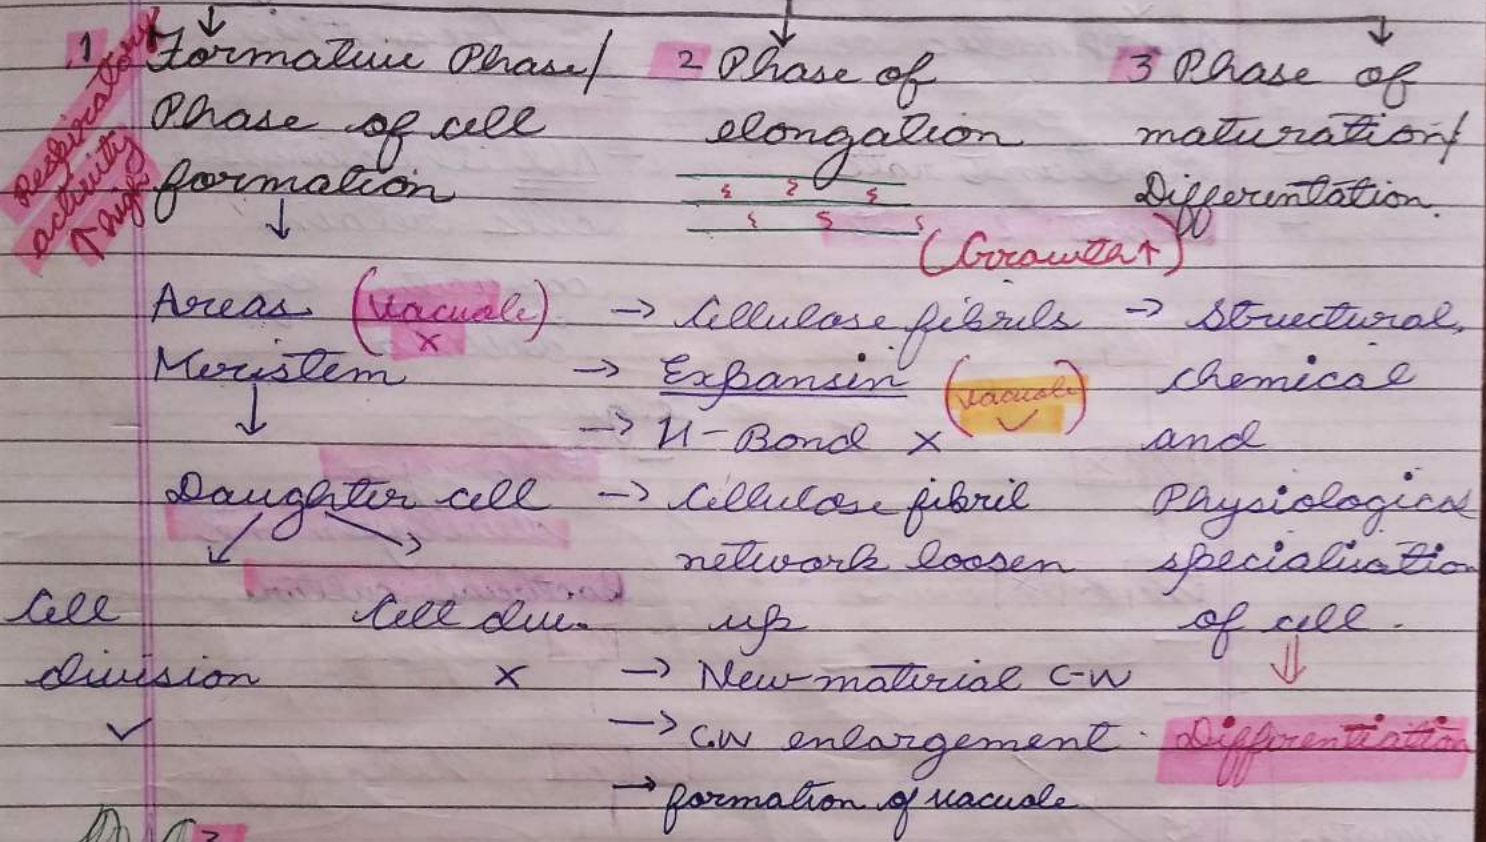 1 Formative Phase/
Phase of cell
formation
Respiratory
activity
↑ high
↓
Areas (Vacuole)
x
Meristem
↓
Daughter cell
Cell
division
✓
Cell div.
x
2 Phase of
elongation
(Growth↑)
→ Cellulose fibrils
→ Expansin (Vacuole)
✓
→ H-Bond x
→ Cellulose fibril
network loosen
up
→ New material C-W
→ C.W enlargement.
→ formation of vacuole
3 Phase of
maturation/
Differentation.
→ Structural,
chemical
and
Physiological
specialisation
of cell.
⇓
Differentiation